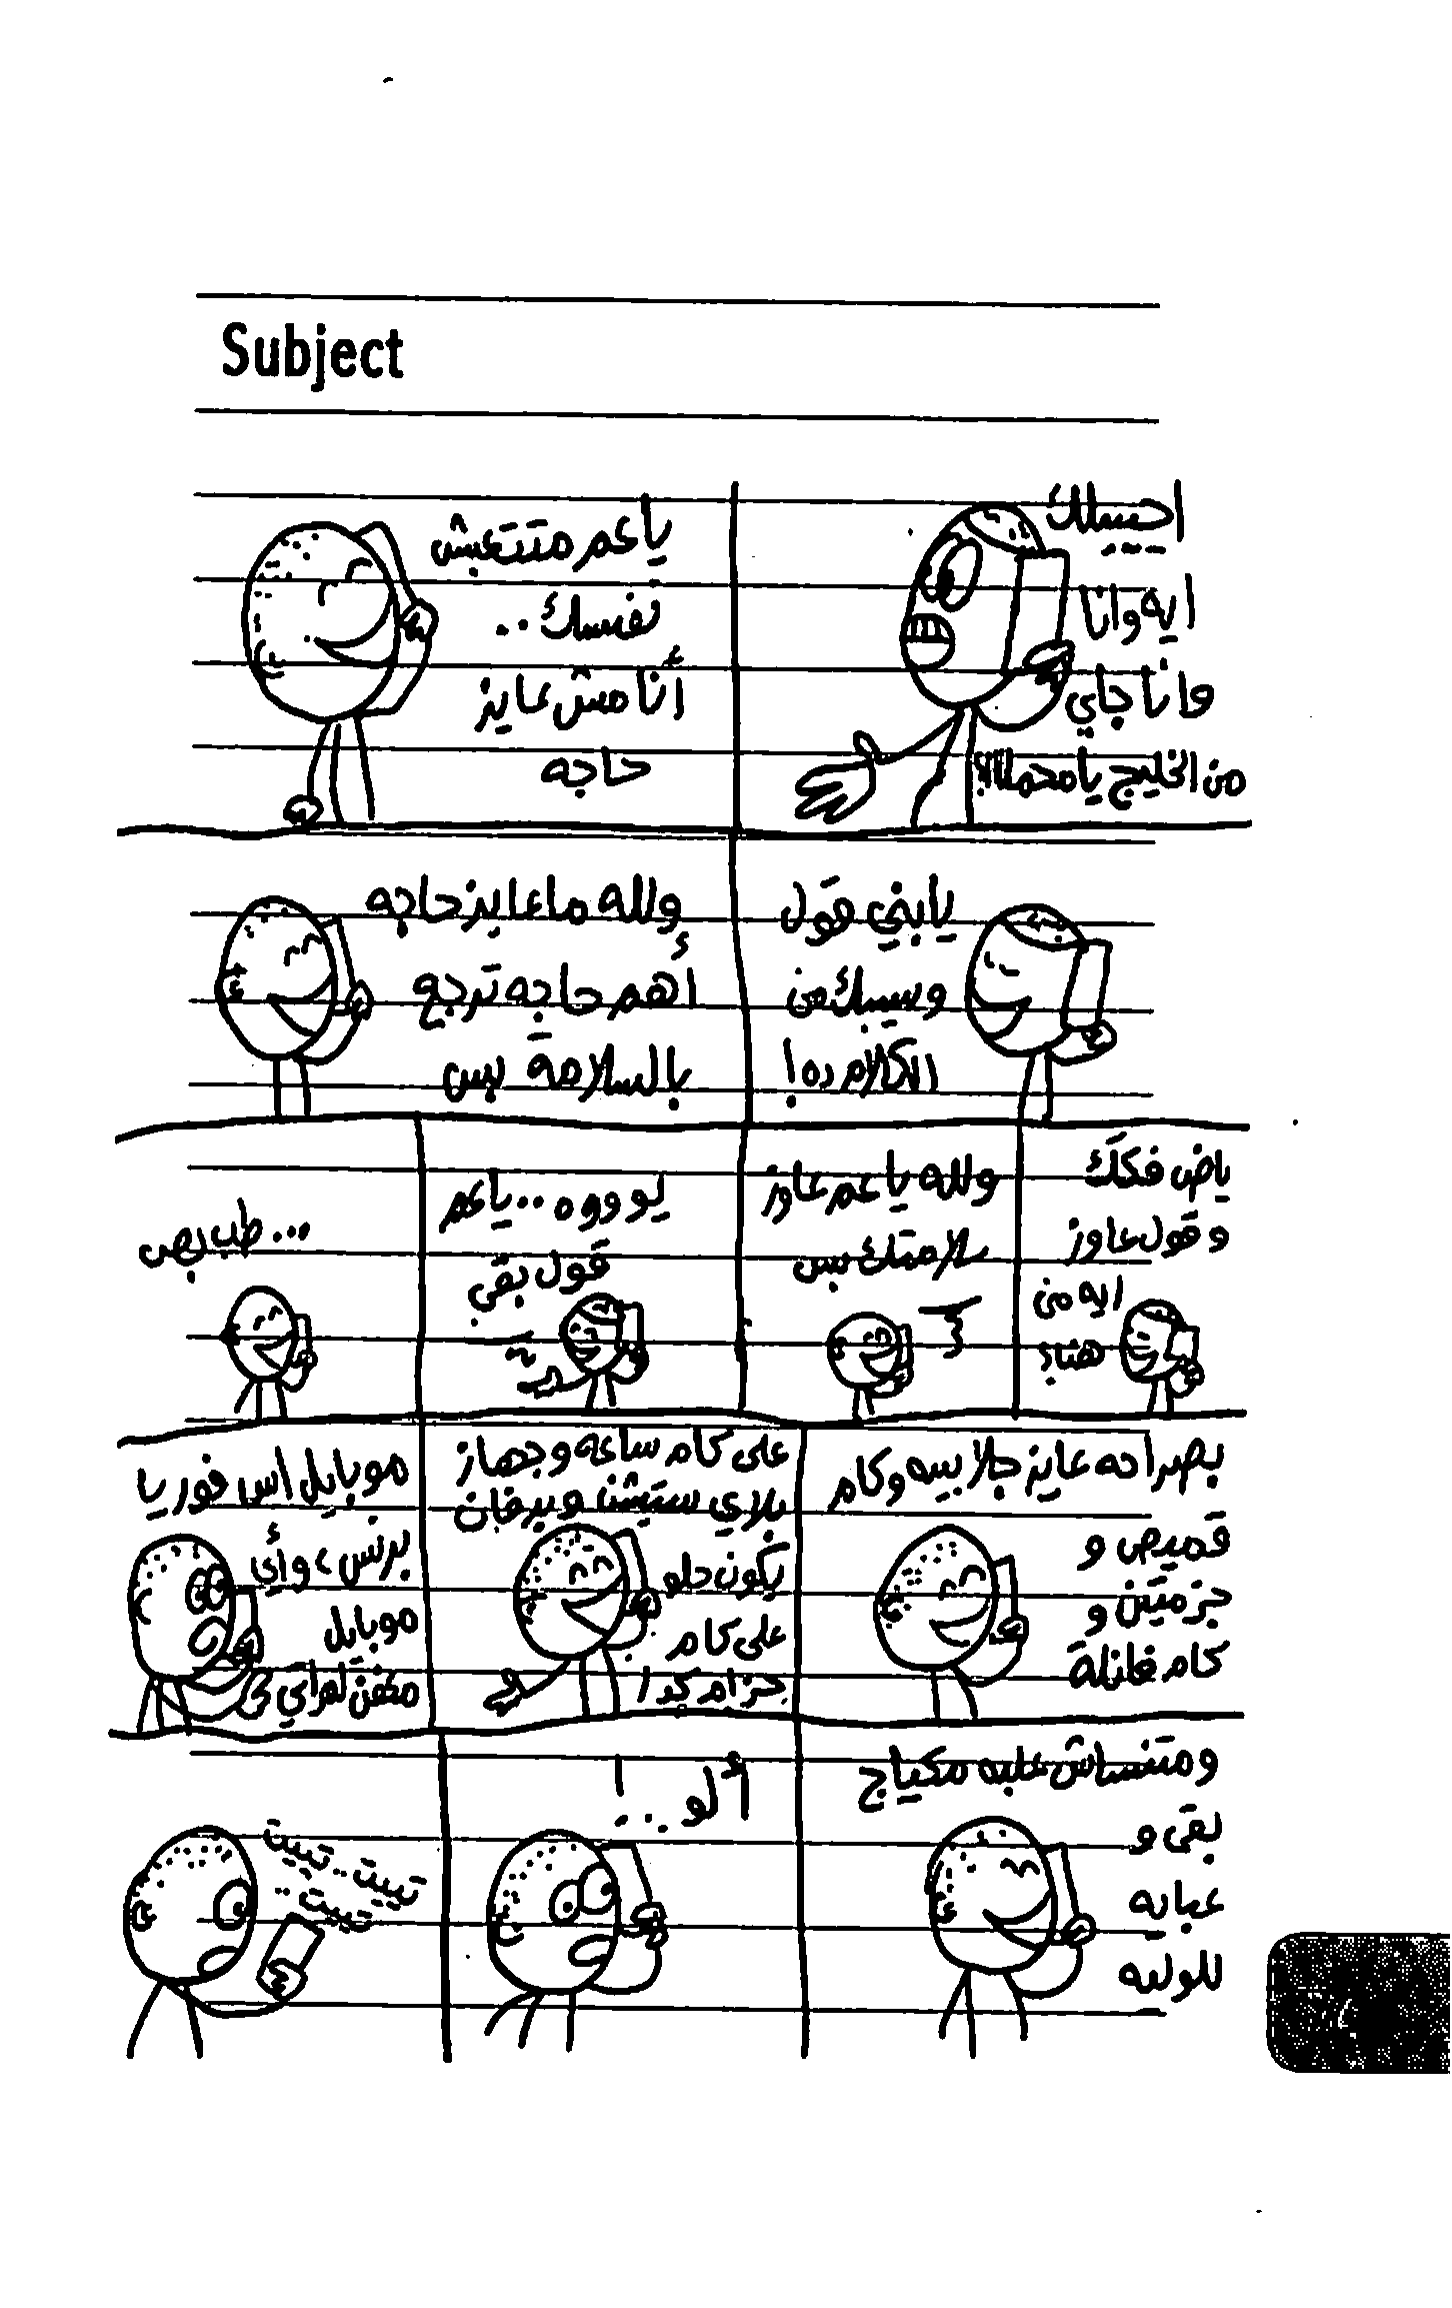 Subject
احيبلك
ايه وانا
وانا جاي
من الخليج يا محمااا!
يا عم متتعبش
نفسك..
أنا مش عايز
حاجه
يابني قول
وسيبك من
الكلام ده!
والله ما عايز حاجه
أهم حاجه ترجع
بالسلامة بس
ياض فكك
وقول عاوز
ايه من
هنا؟
والله يا عم عاوز
سلامتك بس
يوووه.. يا عم
قول بقى
...طب بص
بصراحه عايز جلابيه وكام
قميص و
جزمتين و
كام فانلة
على كام ساعه وجهاز
بلاي ستيشن وبرفان
يكون حلو
على كام
حزام كدا
موبايل اس فور يا
برنس، وأي
موبايل
لمراتي
ومتنساش علبه مكياج
بقى و
عبايه
للوليه
ألو..!
تيييت.. تيييت
تيييت..